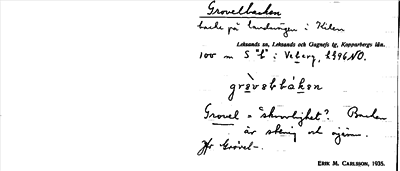 Grovelbacken
backe på landsvägen i Hilen
Leksands sn, Leksands och Gagnefs tg, Kopparbergs län.
100 m S "b" i Vsberg, 1396 NO.
grəvəbbákən
Grovel = "skrovlighet". Backen
är stenig och ojämn.
Jfr Grövel-.
ERIK M. CARLSSON, 1935.